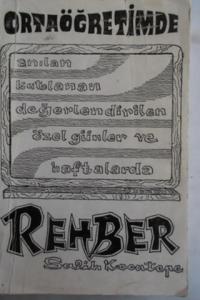 ORTAÖĞRETİMDE
anılan
kutlanan
değerlendirilen
özel günler ve
haftalarda
REHBER
Salih Koçntepe